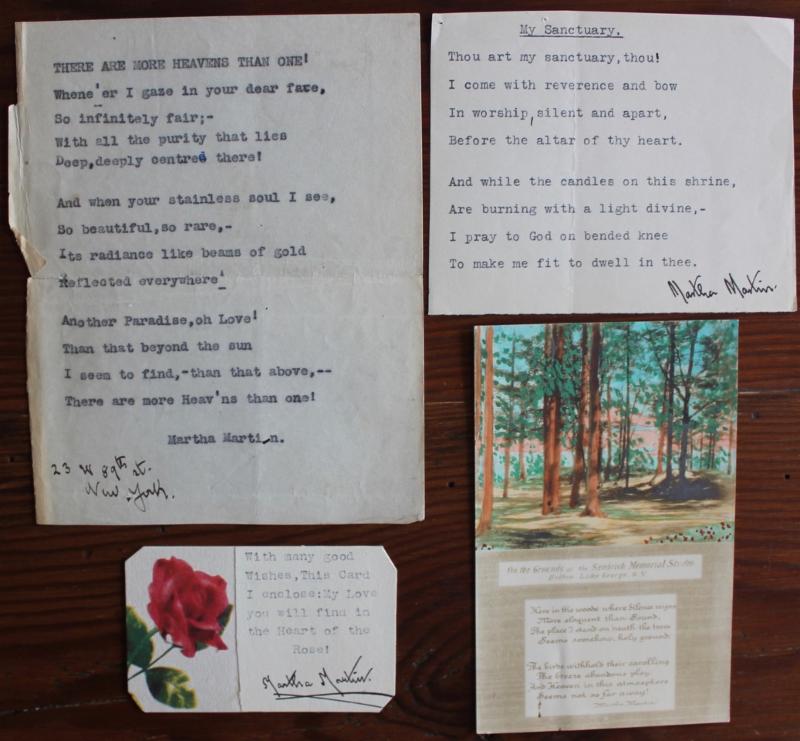 THERE ARE MORE HEAVENS THAN ONE!
Whene'er I gaze in your dear face,
So infinitely fair;-
With all the purity that lies
Deep,deeply centred there!
And when your stainless soul I see,
So beautiful,so rare,-
Its radiance like beams of gold
Reflected everywhere!
Another Paradise,oh Love!
Than that beyond the sun
I seem to find,-than that above,--
There are more Heav'ns than one!
Martha Martin.
23 W 89th st.
New York.
My Sanctuary.
Thou art my sanctuary,thou!
I come with reverence and bow
In worship,silent and apart,
Before the altar of thy heart.
And while the candles on this shrine,
Are burning with a light divine,-
I pray to God on bended knee
To make me fit to dwell in thee.
Martha Martin.
With many good
Wishes,This Card
I enclose:My Love
you will find in
the Heart of the
Rose!
Martha Martin.
On the Grounds of the Sembrich Memorial Studio
Bolton Lake George, N.Y.
Here in the woods where Silence reigns
More eloquent than Sound,
The place I stand on 'neath the trees
Seems somehow, holy ground.
The birds withhold their carolling
The breeze abandons play,
And Heaven in this atmosphere
Seems not so far away!
Martha Martin